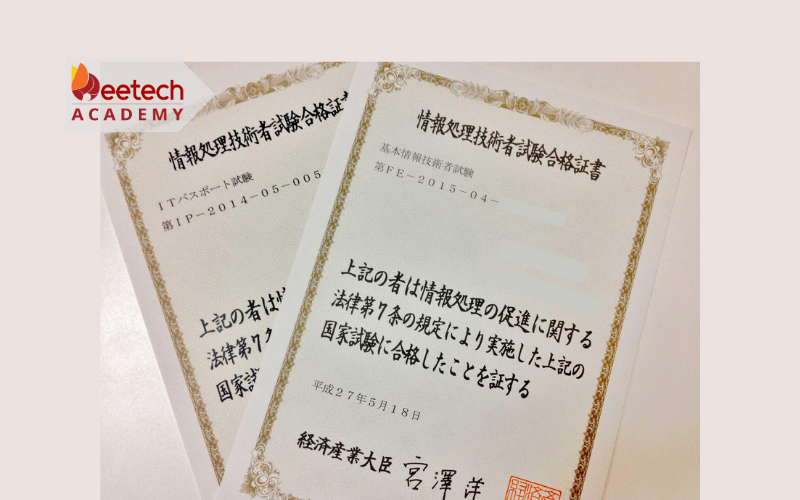 eetech
ACADEMY
情報処理技術者試験合格証書
ITパスポート試験
第IP－2014－05－005
上記の者は情
法律第7
国家試
情報処理技術者試験合格証書
基本情報技術者試験
第FE－2015－04－
上記の者は情報処理の促進に関する
法律第7条の規定により実施した上記の
国家試験に合格したことを証する
平成27年5月18日
経済産業大臣 宮澤洋